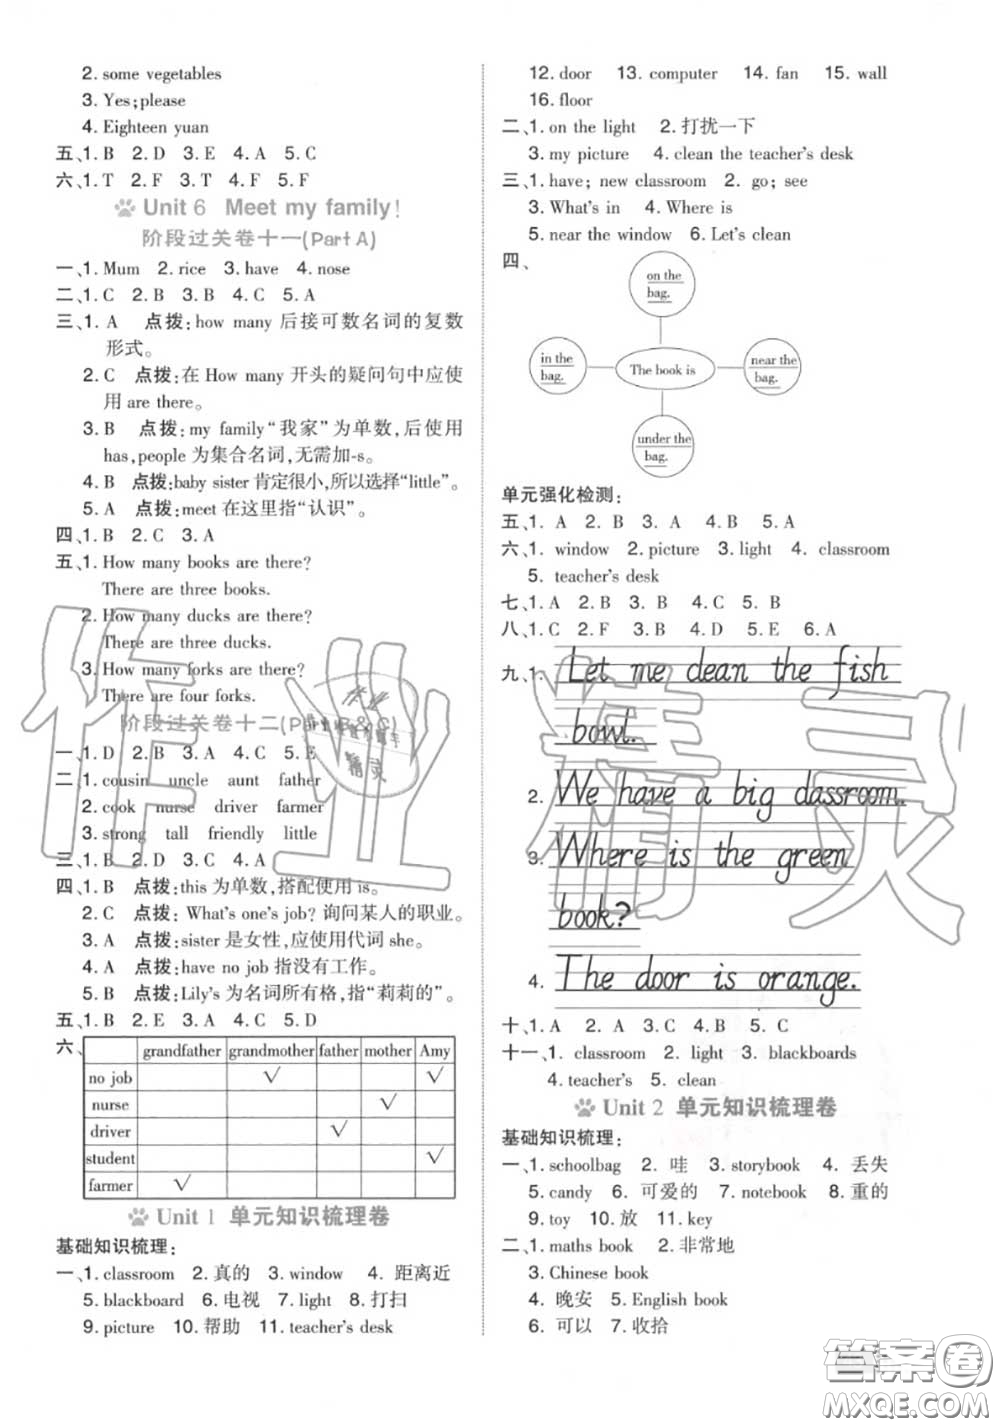 2. some vegetables
3. Yes;please
4. Eighteen yuan
五、1. B 2. D 3. E 4. A 5. C
六、1. T 2. F 3. T 4. F 5. F
Unit 6 Meet my family!
阶段过关卷十一(Part A)
一、1. Mum 2. rice 3. have 4. nose
二、1. C 2. B 3. B 4. C 5. A
三、1. A 点拨:how many 后接可数名词的复数
形式。
2. C 点拨:在 How many 开头的疑问句中应使
用 are there。
3. B 点拨:my family“我家”为单数,后使用
has,people 为集合名词,无需加-s。
4. B 点拨:baby sister 肯定很小,所以选择“little”。
5. A 点拨:meet 在这里指“认识”。
四、1. B 2. C 3. A
五、1. How many books are there?
There are three books.
2. How many ducks are there?
There are three ducks.
3. How many forks are there?
There are four forks.
阶段过关卷十二(Part B & C)
一、1. D 2. B 3. A 4. C 5. A
二、1. cousin uncle aunt father
2. cook nurse driver farmer
3. strong tall friendly little
三、1. B 2. D 3. C 4. C 5. A
四、1. B 点拨:this 为单数,搭配使用 is。
2. C 点拨: What's one's job? 询问某人的职业。
3. A 点拨:sister 是女性,应使用代词 she。
4. A 点拨:have no job 指没有工作。
5. B 点拨:Lily's 为名词所有格,指“莉莉的”。
五、1. B 2. E 3. A 4. C 5. D
六、
grandfather grandmother father mother Amy
no job √ √
nurse √
driver √
student √
farmer √
Unit 1 单元知识梳理卷
基础知识梳理:
一、1. classroom 2. 真的 3. window 4. 距离近
5. blackboard 6. 电视 7. light 8. 打扫
9. picture 10. 帮助 11. teacher's desk
12. door 13. computer 14. fan 15. wall
16. floor
二、1. on the light 2. 打扰一下
3. my picture 4. clean the teacher's desk
三、1. have; new classroom 2. go; see
3. What's in 4. Where is
5. near the window 6. Let's clean
四、
on the
bag.
in the
bag.
The book is
near the
bag.
under the
bag.
单元强化检测:
五、1. A 2. B 3. A 4. B 5. A
六、1. window 2. picture 3. light 4. classroom
5. teacher's desk
七、1. A 2. B 3. B 4. C 5. B
八、1. C 2. F 3. B 4. D 5. E 6. A
九、1. Let me clean the fish
bowl.
2. We have a big classroom.
3. Where is the green
book?
4. The door is orange.
十、1. A 2. A 3. C 4. B 5. C
十一、1. classroom 2. light 3. blackboards
4. teacher's 5. clean
Unit 2 单元知识梳理卷
基础知识梳理:
一、1. schoolbag 2. 哇 3. storybook 4. 丢失
5. candy 6. 可爱的 7. notebook 8. 重的
9. toy 10. 放 11. key
二、1. maths book 2. 非常地
3. Chinese book
4. 晚安 5. English book
6. 可以 7. 收拾
作业精灵
答案圈
MXQE.COM